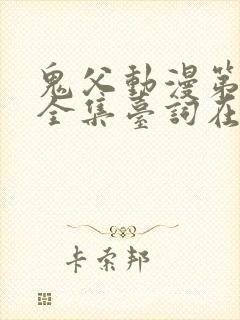 鬼父動漫第
全集臺詞在
卡索邦